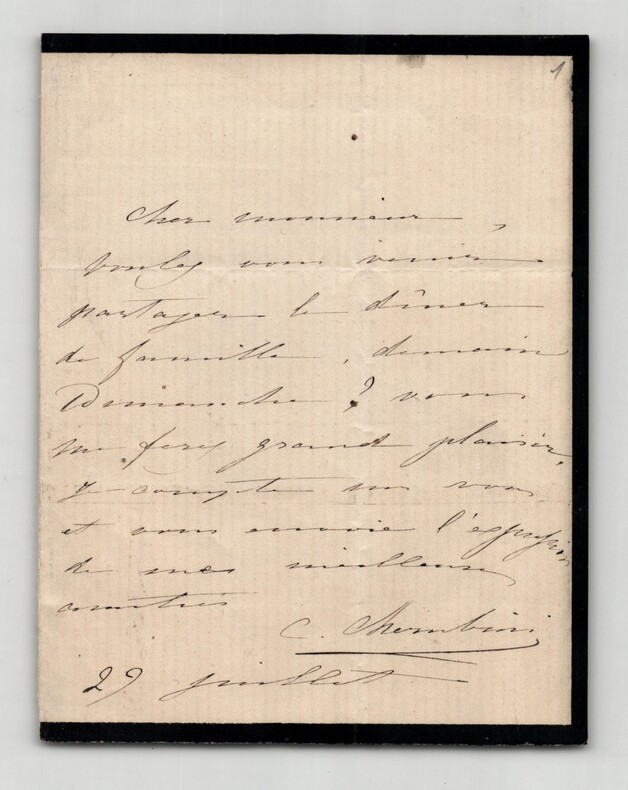 1
Cher monsieur,
voulez vous venir
partager le dîner
de famille, demain
Dimanche ? vous
me ferez grand plaisir,
je compte sur vous
et vous envoie l'expression
de mes meilleures
amitiés
C. Cherubini
29 juillet